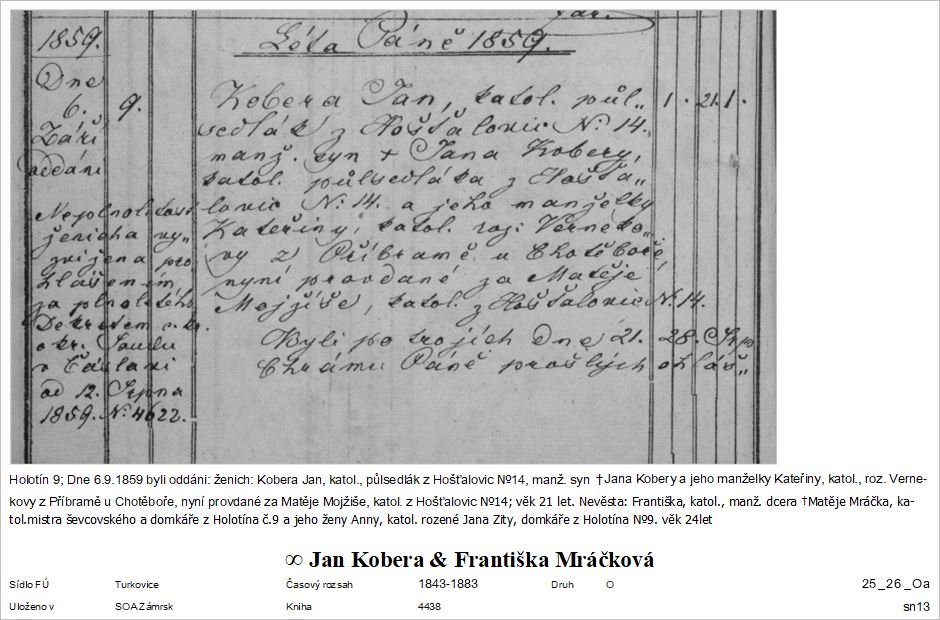 1859. Léta Páně 1859.
Dne
6. 9.
Září
oddáni
Kobera Jan, katol. půl„ 1. 21. 1.
sedlák z Hošťalovic No. 14.
manž. syn + Jana Kobery,
katol. půlsedláka z Hošťa„
lovic No. 14. a jeho manželky
Kateřiny, katol. roz. Verneko„
vy z Příbramě u Chotěboře,
nyní provdané za Matěje
Mojžíše, katol. z Hošťalovic No. 14.
Neplnoletost
ženicha vy„
zvižena pro
hlášením
za plnoletého
Dekretem c. kr.
okr. Soudu
v Čáslavi
od 12. Srpna
1859. No. 4622.
Byli po trojích Dne 21. 28. Srpn
Chrámu Páně prošlých ohláš„
Holotín 9; Dne 6.9.1859 byli oddáni: ženich: Kobera Jan, katol., půlsedlák z Hošťalovic №14, manž. syn †Jana Kobery a jeho manželky Kateřiny, katol., roz. Verne-
kovy z Příbramě u Chotěboře, nyní provdané za Matěje Mojžiše, katol. z Hošťalovic №14; věk 21 let. Nevěsta: Františka, katol., manž. dcera †Matěje Mráčka, ka-
tol.mistra ševcovského a domkáře z Holotína č.9 a jeho ženy Anny, katol. rozené Jana Zity, domkáře z Holotína №9. věk 24let
∞ Jan Kobera & Františka Mráčková
Sídlo FÚ Turkovice Časový rozsah 1843-1883 Druh O 25_26_Oa
Uloženo v SOA Zámrsk Kniha 4438 sn13